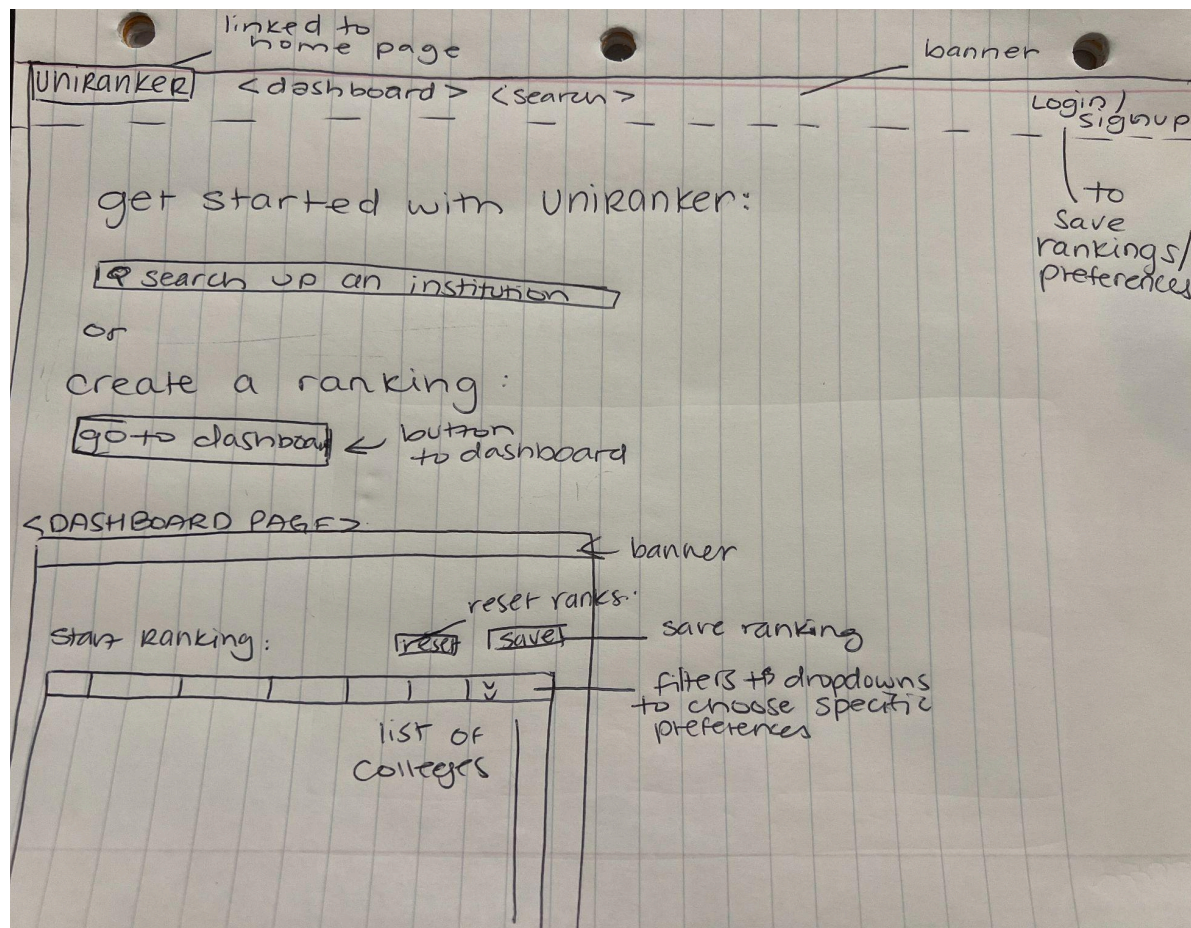 linked to
home page
banner
UNIRANKER <dashboard> <search>
Login/
signup
to
save
rankings/
preferences
get started with UNIRANKER:
search up an institution
or
create a ranking:
go to dashboard
button
to dashboard
<DASHBOARD PAGE>
banner
reset ranks:
start Ranking:
reset
save
save ranking
filters + dropdowns
to choose specific
preferences
list of
colleges